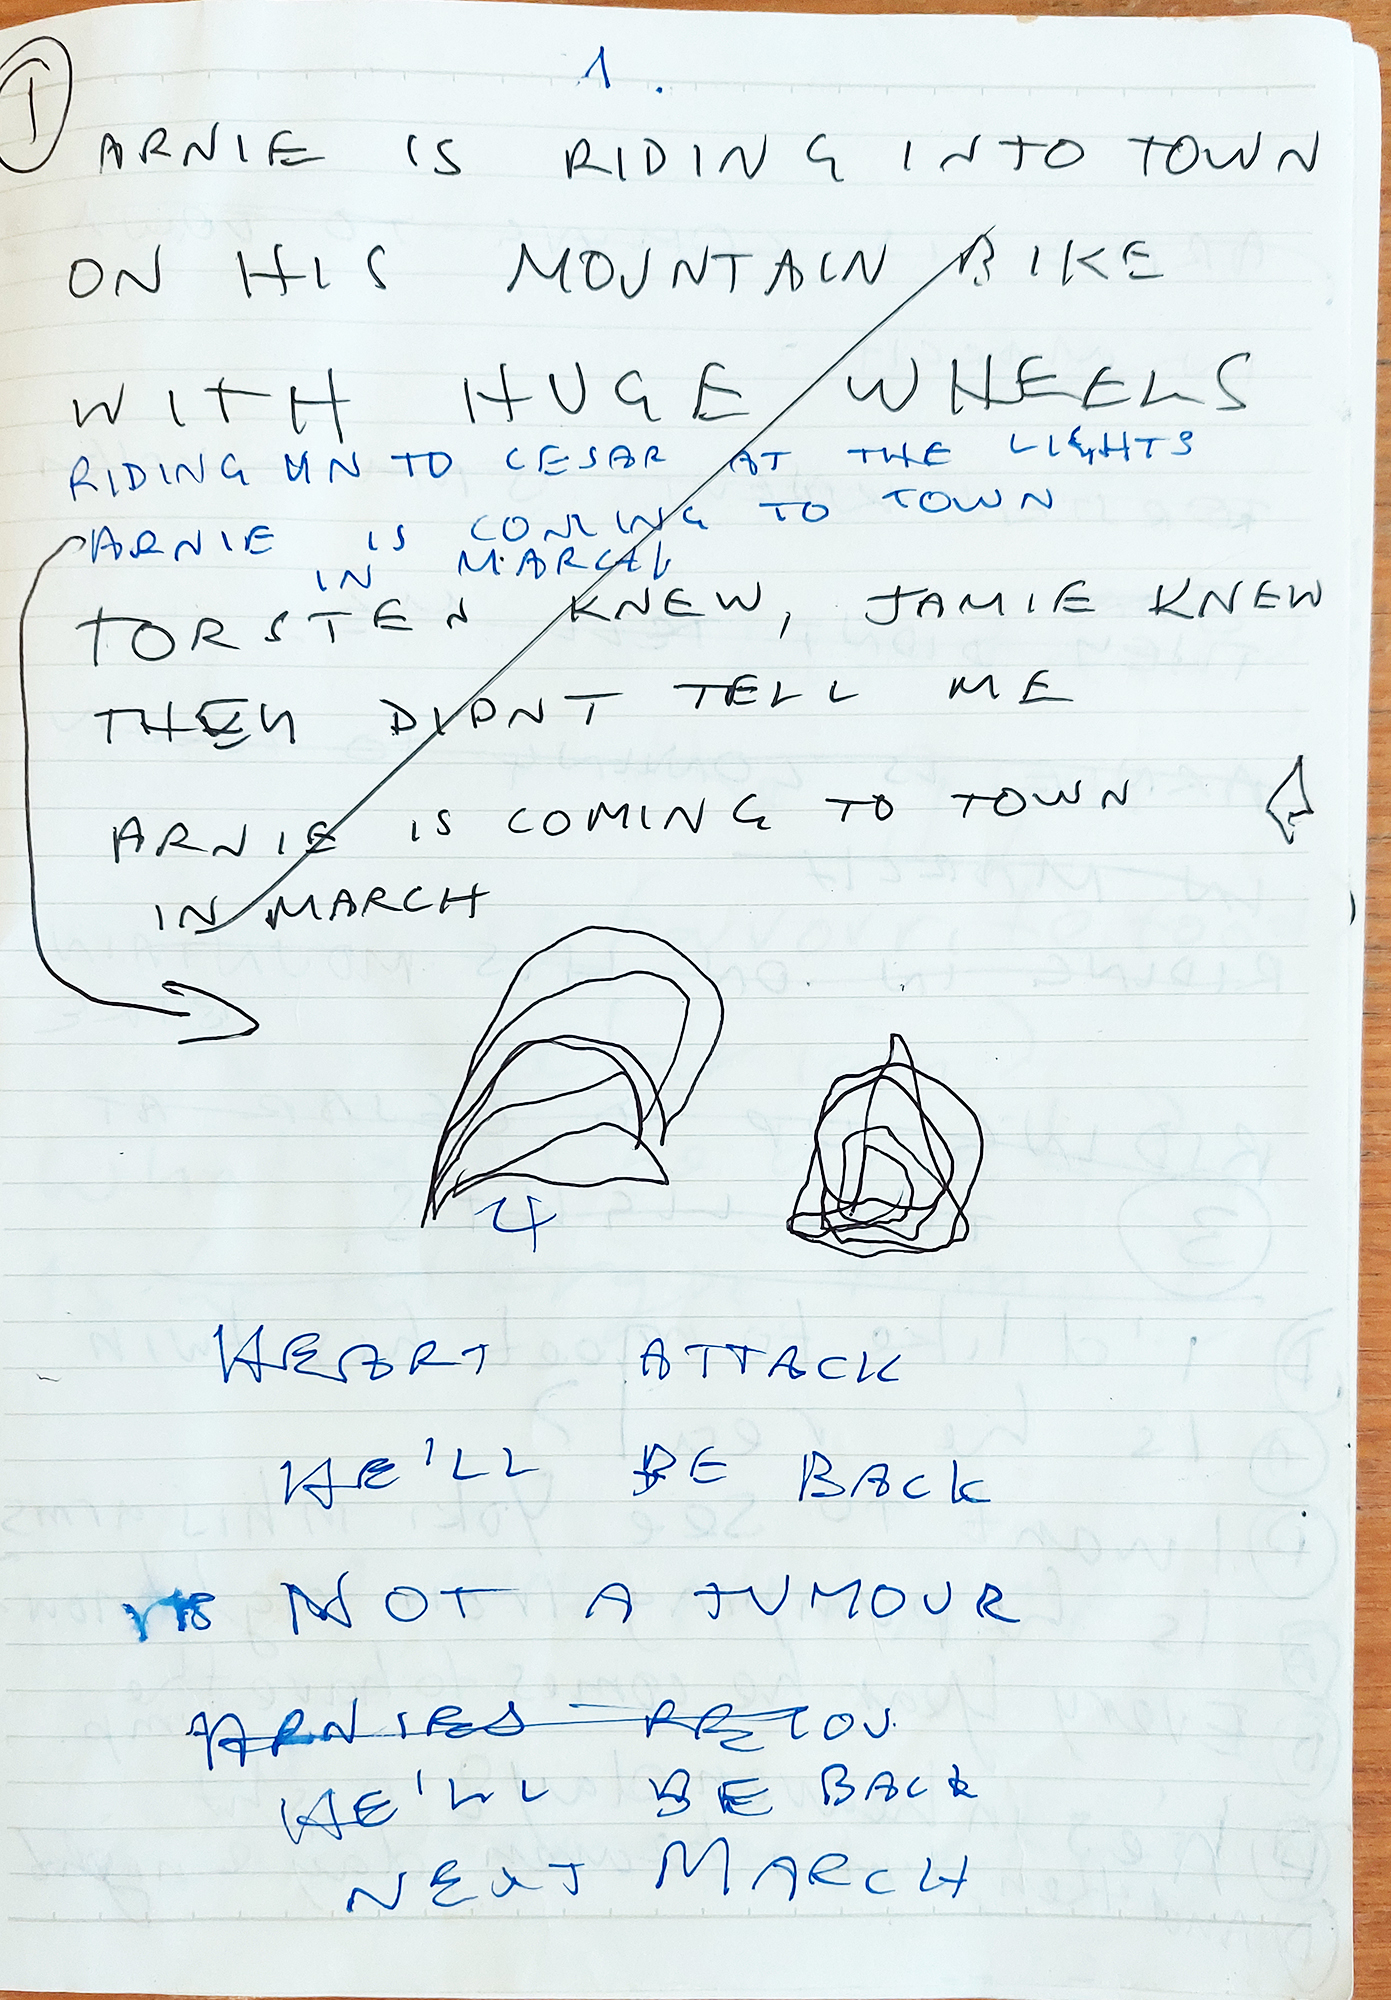 1
1.
ARNIE IS RIDING INTO TOWN
ON HIS MOUNTAIN BIKE
WITH HUGE WHEELS
RIDING UN TO CESAR AT THE LIGHTS
ARNIE IS COMING TO TOWN
IN MARCH
TORSTEN KNEW, JAMIE KNEW
THEY DIDNT TELL ME
ARNIE IS COMING TO TOWN
IN MARCH
HEART ATTACK
HE'LL BE BACK
NOT A TUMOUR
ARNIES
HE'LL BE BACK
NEXT MARCH